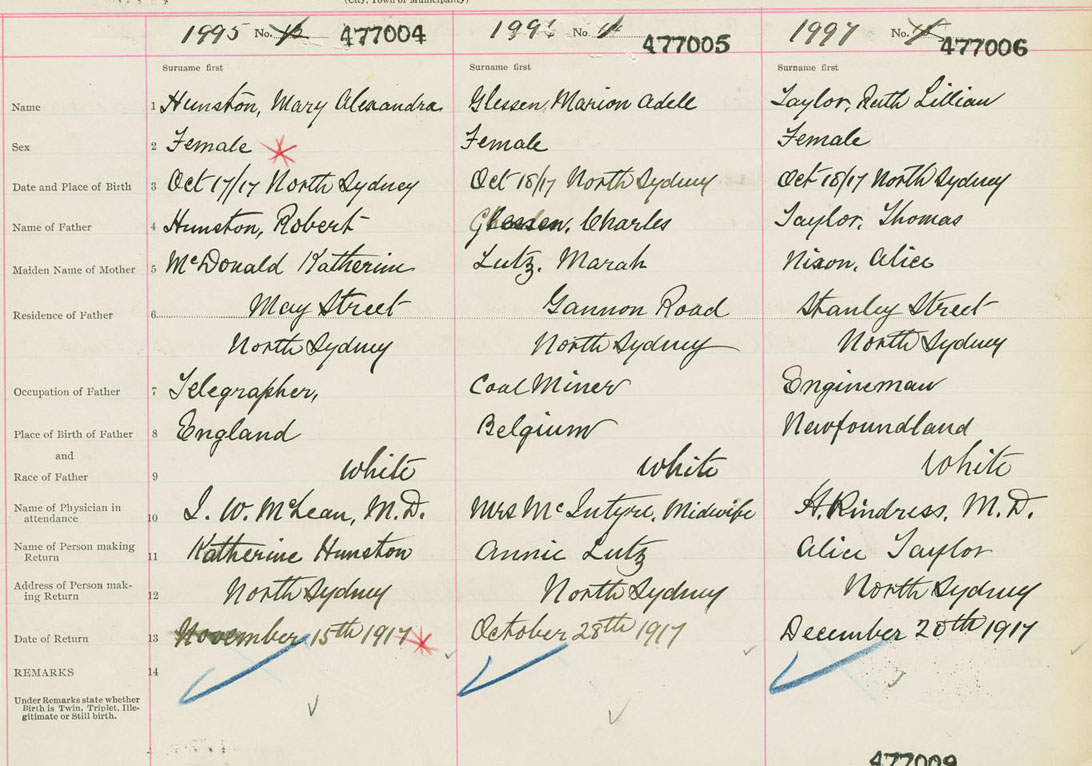 (City, Town or Municipality)
1995 No. 477004 No. 477005 1997 No. 477006
Surname first Surname first Surname first
Name 1 Hunston, Mary Alexandra Marion Adele Taylor, Ruth Lillian
Sex 2 Female Female Female
Date and Place of Birth 3 Oct 17/17 North Sydney Oct 18/17 North Sydney Oct 18/17 North Sydney
Name of Father 4 Hunston, Robert Charles Taylor, Thomas
Maiden Name of Mother 5 McDonald Katherine Lutz, Marah Nixon, Alice
Residence of Father 6 May Street Gannon Road Stanley Street
North Sydney North Sydney North Sydney
Occupation of Father 7 Telegrapher, Coal Miner Engineman
Place of Birth of Father 8 England Belgium Newfoundland
and
Race of Father 9 white white white
Name of Physician in attendance 10 McLean, M.D. Mrs McIntyre, Midwife H. Rindress, M.D.
Name of Person making Return 11 Katherine Hunston Annie Lutz Alice Taylor
Address of Person mak-
ing Return 12 North Sydney North Sydney North Sydney
Date of Return 13 November 15th 1917 October 28th 1917 December 20th 1917
REMARKS 14
Under Remarks state whether
Birth is Twin, Triplet, Ille-
gitimate or Still birth.
477009